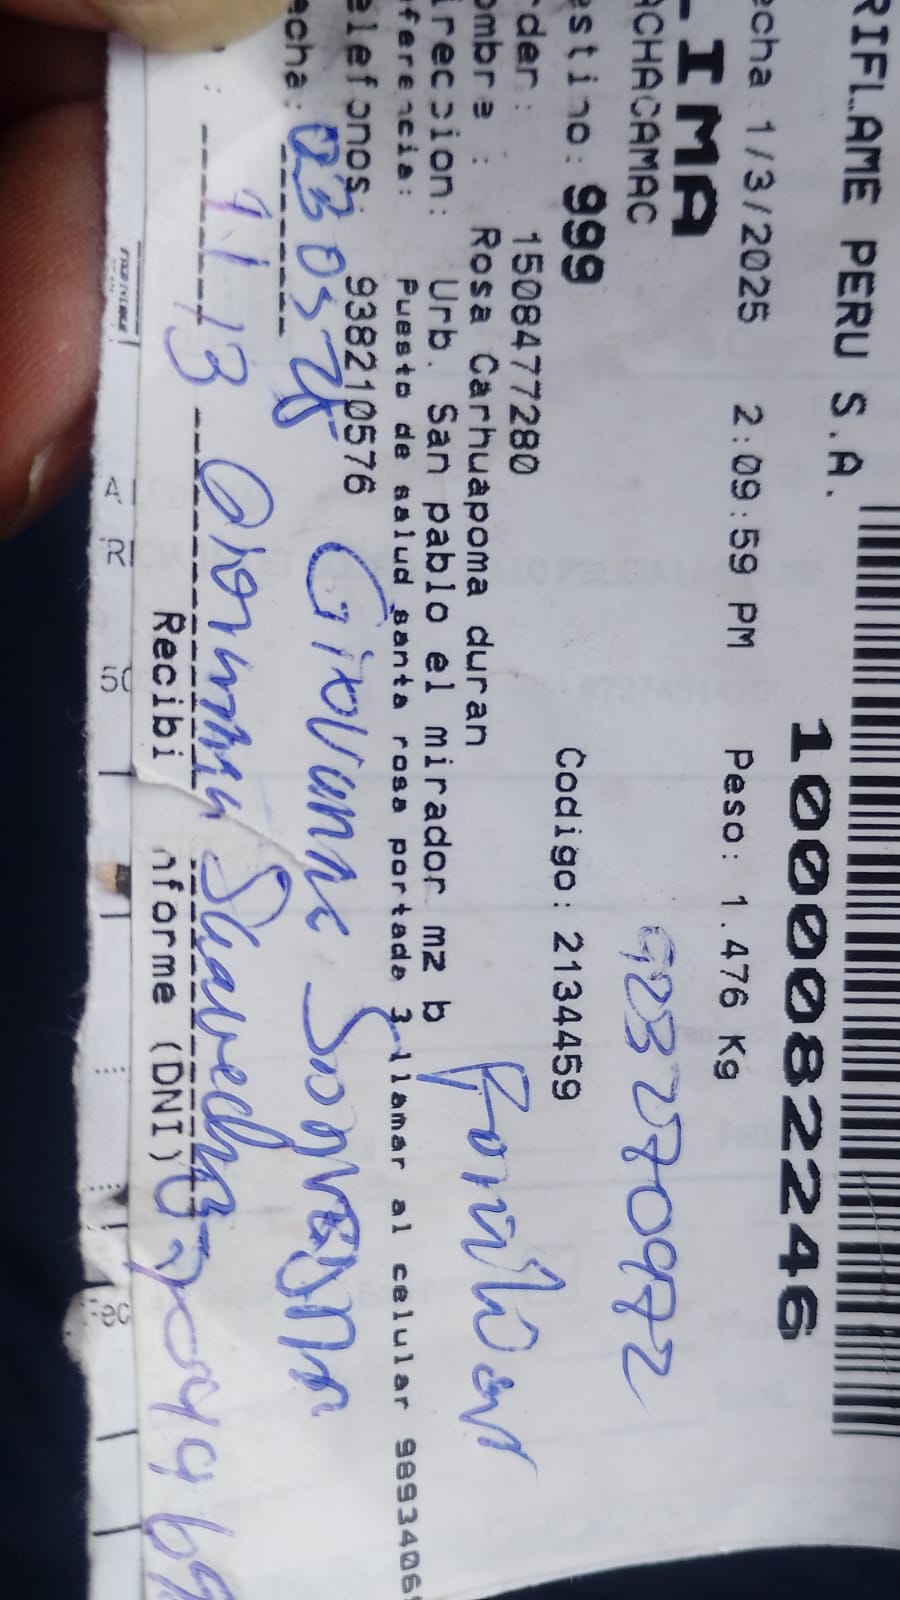 RIFLAME PERU S.A.
10000822246
echa: 1/3/2025 2:09:59 PM Peso: 1.476 Kg
LIMA
ACHACAMAC
923270972
estino: 999 Codigo: 2134459
rder: 1508477280
ombre : Rosa Carhuapoma duran
familiar
ireccion: Urb. San pablo el mirador mz b
eferencia: Puesto de salud santa rosa portada 3 llamar al celular 9893406
elefonos: 938210576
echa: 03 03 25 Giovanni
1113 Giovanni
Recibi nforme (DNI)
A
R
50
Fec